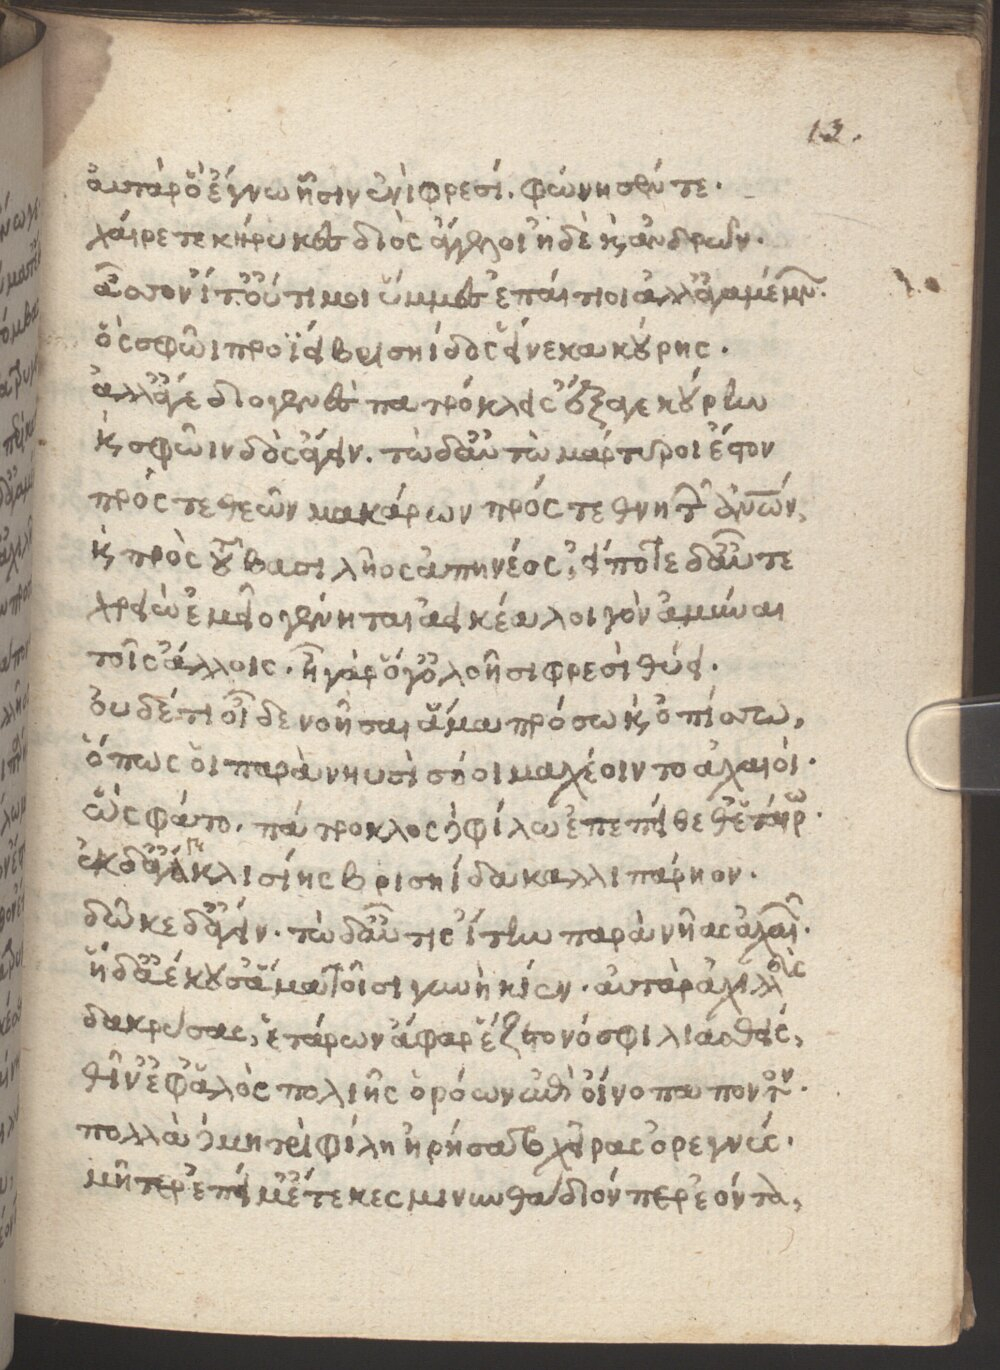 12.
αὐτὰρ ὃ ἔγνω ᾗσιν ἐνὶ φρεσί. φώνησέν τε.
χαίρετε κήρυκες διὸς ἄγγελοι ἠδὲ κ̀ ἀνδρῶν.
ἆσσον ἴτ' οὔ τί μοι ὔμμες ἐπαίτιοι ἀλλ' ἀγαμέμνων.
ὃς σφῶϊ προΐει βρισηΐδος εἵνεκα κούρης.
ἀλλ' ἄγε διογενὲς πατρόκλεις ἔξαγε κούρην
κ̀ σφῶιν δὸς ἄγειν. τὼ δ' αὐτὼ μάρτυροι ἔστον
πρός τε θεῶν μακάρων πρός τε θνητῶν ἀνων,
κ̀ πρὸς τοῦ βασιλῆος ἀπηνέος, εἴποτε δ' αὖτε
χρειὼ ἐμεῖο γένηται ἀεικέα λοιγὸν ἀμύναι
τοῖς ἄλλοις. ἦ γὰρ ὅγ' ὀλοῇσι φρεσὶ θύει.
οὐδέ τι οἶδε νοῆσαι ἅμα πρόσω κ̀ ὀπίσσω,
ὅπως οἱ παρὰ νηυσὶ σόοι μαχέοιντο ἀχαιοί.
ὣς φάτο. πάτροκλος δὲ φίλῳ ἐπεπείθεθ' ἑταίρῳ.
ἐκ δ' ἄγαγε κλισίης βρισηΐδα καλλιπάρηον.
δῶκε δ' ἄγειν. τὼ δ' αὖτις ἴτην παρὰ νῆας ἀχαιῶν.
ἡ δ' ἀέκουσ' ἅμα τοῖσι γυνὴ κίεν. αὐτὰρ ἀχιλλεὺς
δακρύσας, ἑτάρων ἄφαρ ἕζετο νόσφι λιασθείς,
θῖν' ἔφ' ἁλὸς πολιῆς ὁρόων ἐπὶ οἴνοπα πόντον.
πολλὰ δὲ μητρὶ φίλῃ ἠρήσατο χεῖρας ὀρεγνύς.
μῆτερ ἐπεί μ' ἔτεκες μινυνθάδιόν περ ἐόντα,